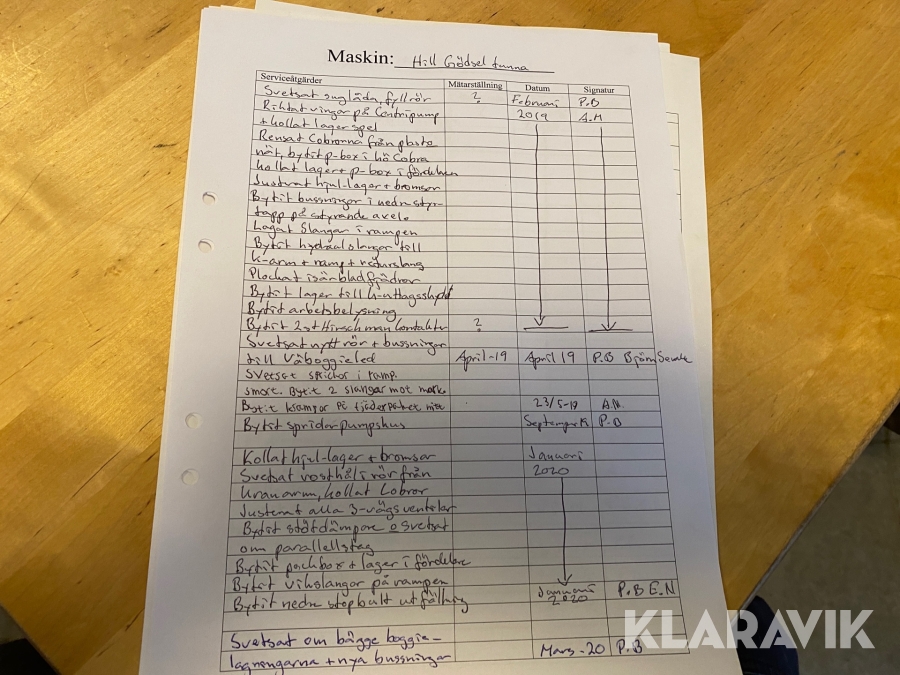 Maskin: Hill Gödsel tunna
Serviceåtgärder Mätarställning Datum Signatur
Svetsat suglåda, fyllrör ? Februari P.B
Riktat vingar på Centripump 2019 A.H
+ kollat lager spel
Rensat Cobrorna från plast
nät, bytit p-box i hö Cobra
kollat lager + p-box i fördelaren
Justerat hjul-lager + bromsar
Bytit bussningar i nedre styr-
tapp på styrande axel
Lagat Slangar i rampen
Bytit hydraulslangar till
k-arm + ramp + returslang
Plockat isär bladfjädrar
Bytit lager till
Bytit arbetsbelysning
Bytit 2st Hirschman kontakter ?
Svetsat nytt rör + bussningar
till Vä boggieled April-19 April 19 P.B Björn
Svetsat sprickor i ramp.
smort. Bytit 2 slangar mot mark
Bytit klampor på fjäderpaket 23/5-19 A.H.
Bytit spridarpumpshus September 19 P.B
Kollat hjul-lager + bromsar Januari
Svetsat rosthål i rör från 2020
kranarm, kollat Cobror
Justerat alla 3-vägsventiler
Bytit stötdämpare o svetsat
om parallellstag
Bytit packbox + lager i fördelare
Bytit vikslangar på rampen Januari P.B E.N
Bytit nedre stopbult utfällning 2020
Svetsat om bägge boggie-
lagningarna + nya bussningar Mars-20 P.B
KLARAVIK